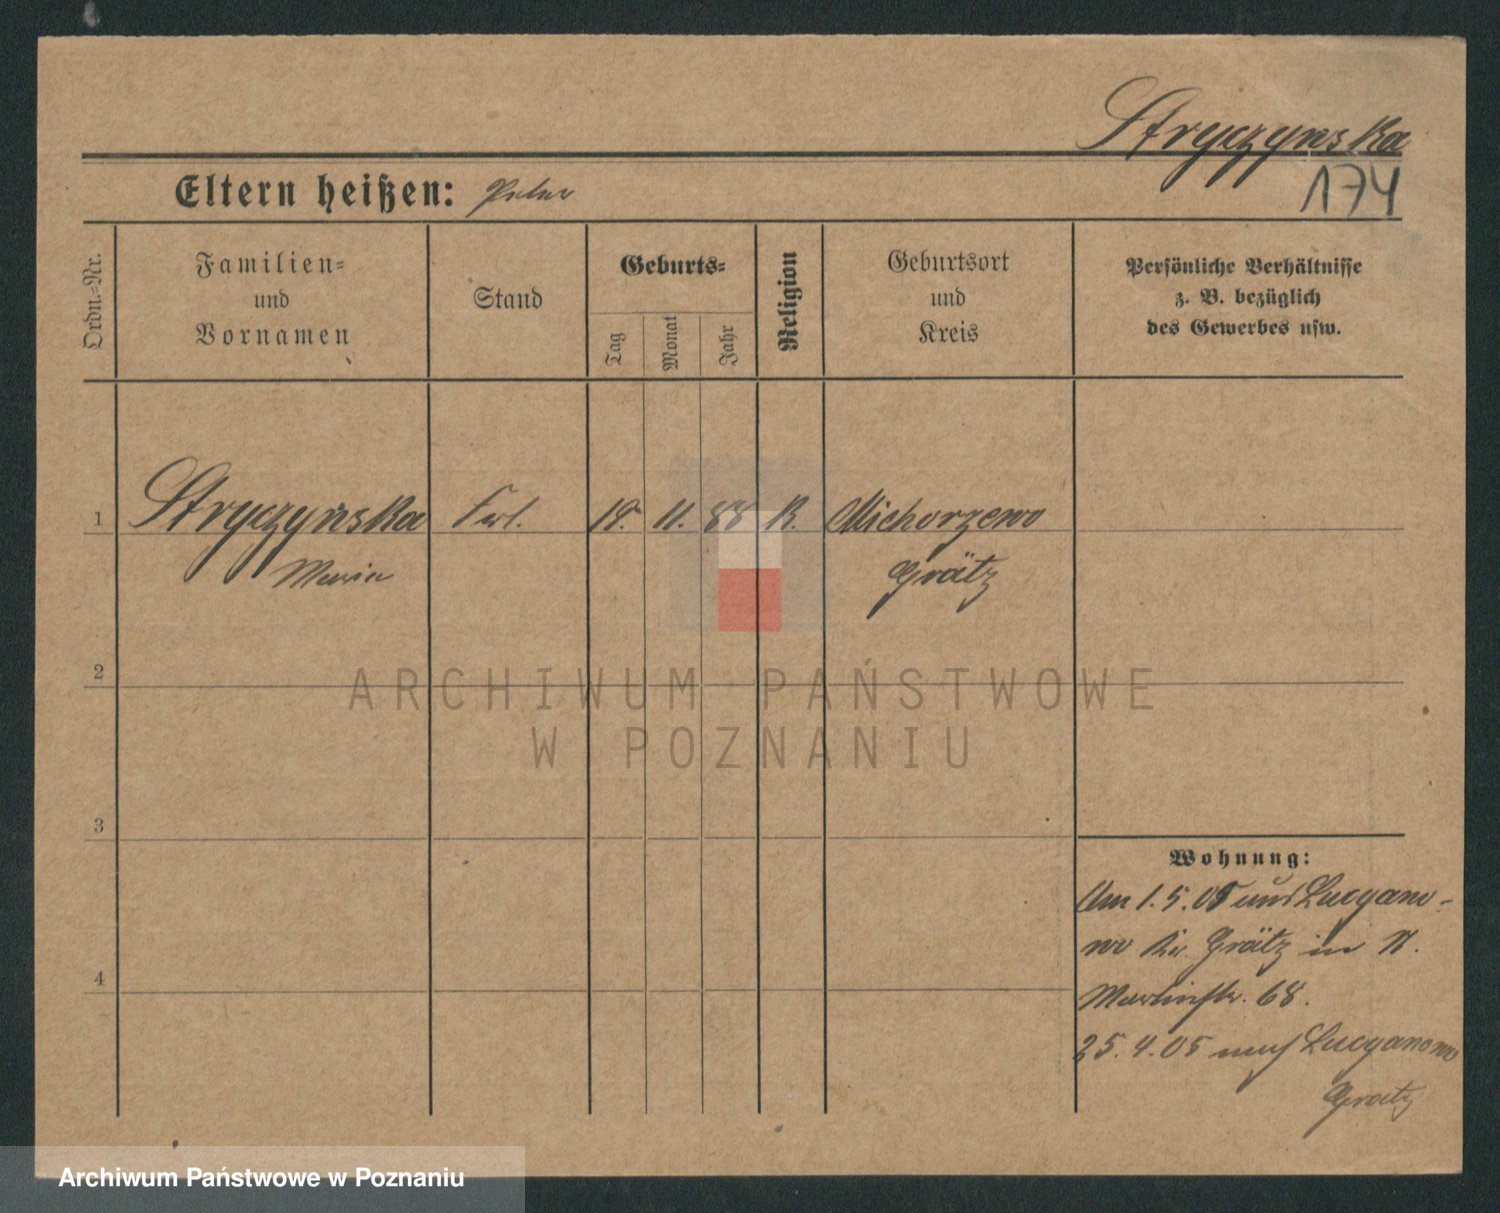 Stryczynska
174
Eltern heißen: Peter
Ordn.-Nr.
Familien-
und
Vornamen
Stand
Geburts-
Tag
Monat
Jahr
Religion
Geburtsort
und
Kreis
Persönliche Verhältnisse
z. B. bezüglich
des Gewerbes usw.
1
Stryczyńska Frl. 18. 11. 88 K. Michorzewo
Maria Grätz
2
ARCHIWUM PAŃSTWOWE
W POZNANIU
3
Wohnung:
Am 1.5.05 aus Lucyano-
wo Kr. Grätz in
4
Martinstr. 68.
25.4.05 nach Lucyanowo
Graetz
Archiwum Państwowe w Poznaniu